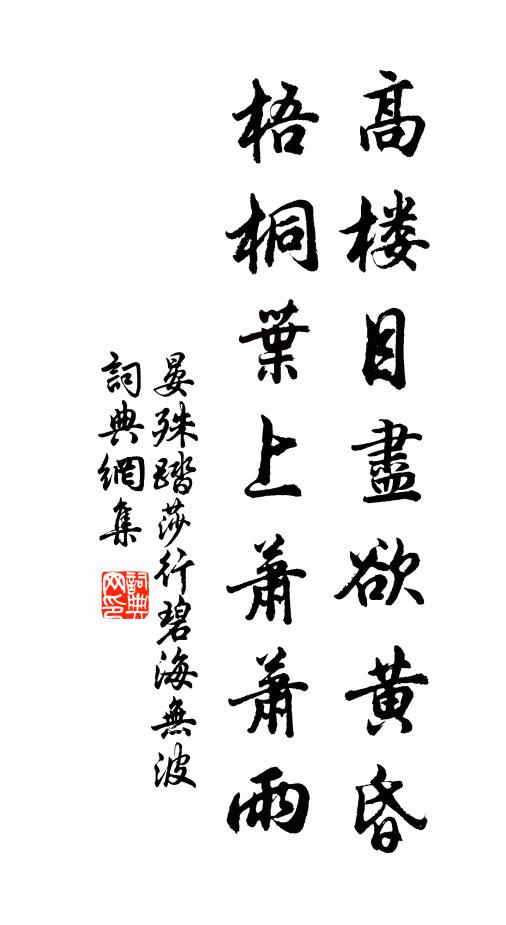 高楼目盡欲黄昏
梧桐葉上蕭蕭雨
晏殊踏莎行碧海無波
詞典網集
詞典网印